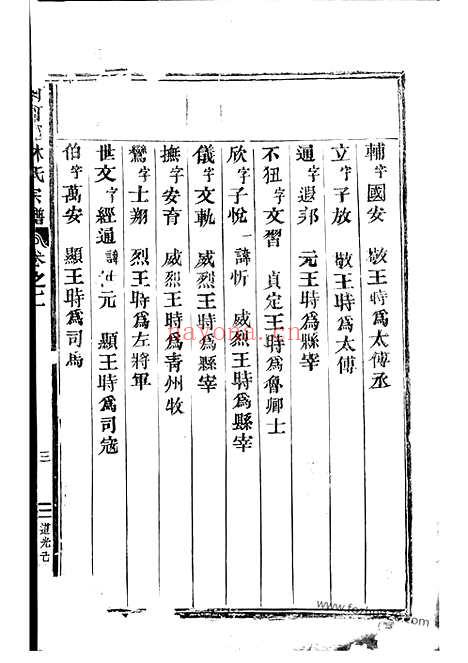 輔字國安 敬王時爲太傅丞
立字子放 敬王時爲太傅
通字遐邦 元王時爲縣宰
不狃字文習 貞定王時爲魯卿士
欣字子悅一諱忻 威烈王時爲縣宰
儀字文軌 威烈王時爲縣宰
撫字安育 威烈王時爲青州牧
鸞字士翔 烈王時爲左將軍
世文字經通諱世元 顯王時爲司寇
伯字萬安 顯王時爲司馬
林氏宗譜 卷之一
三
道光己